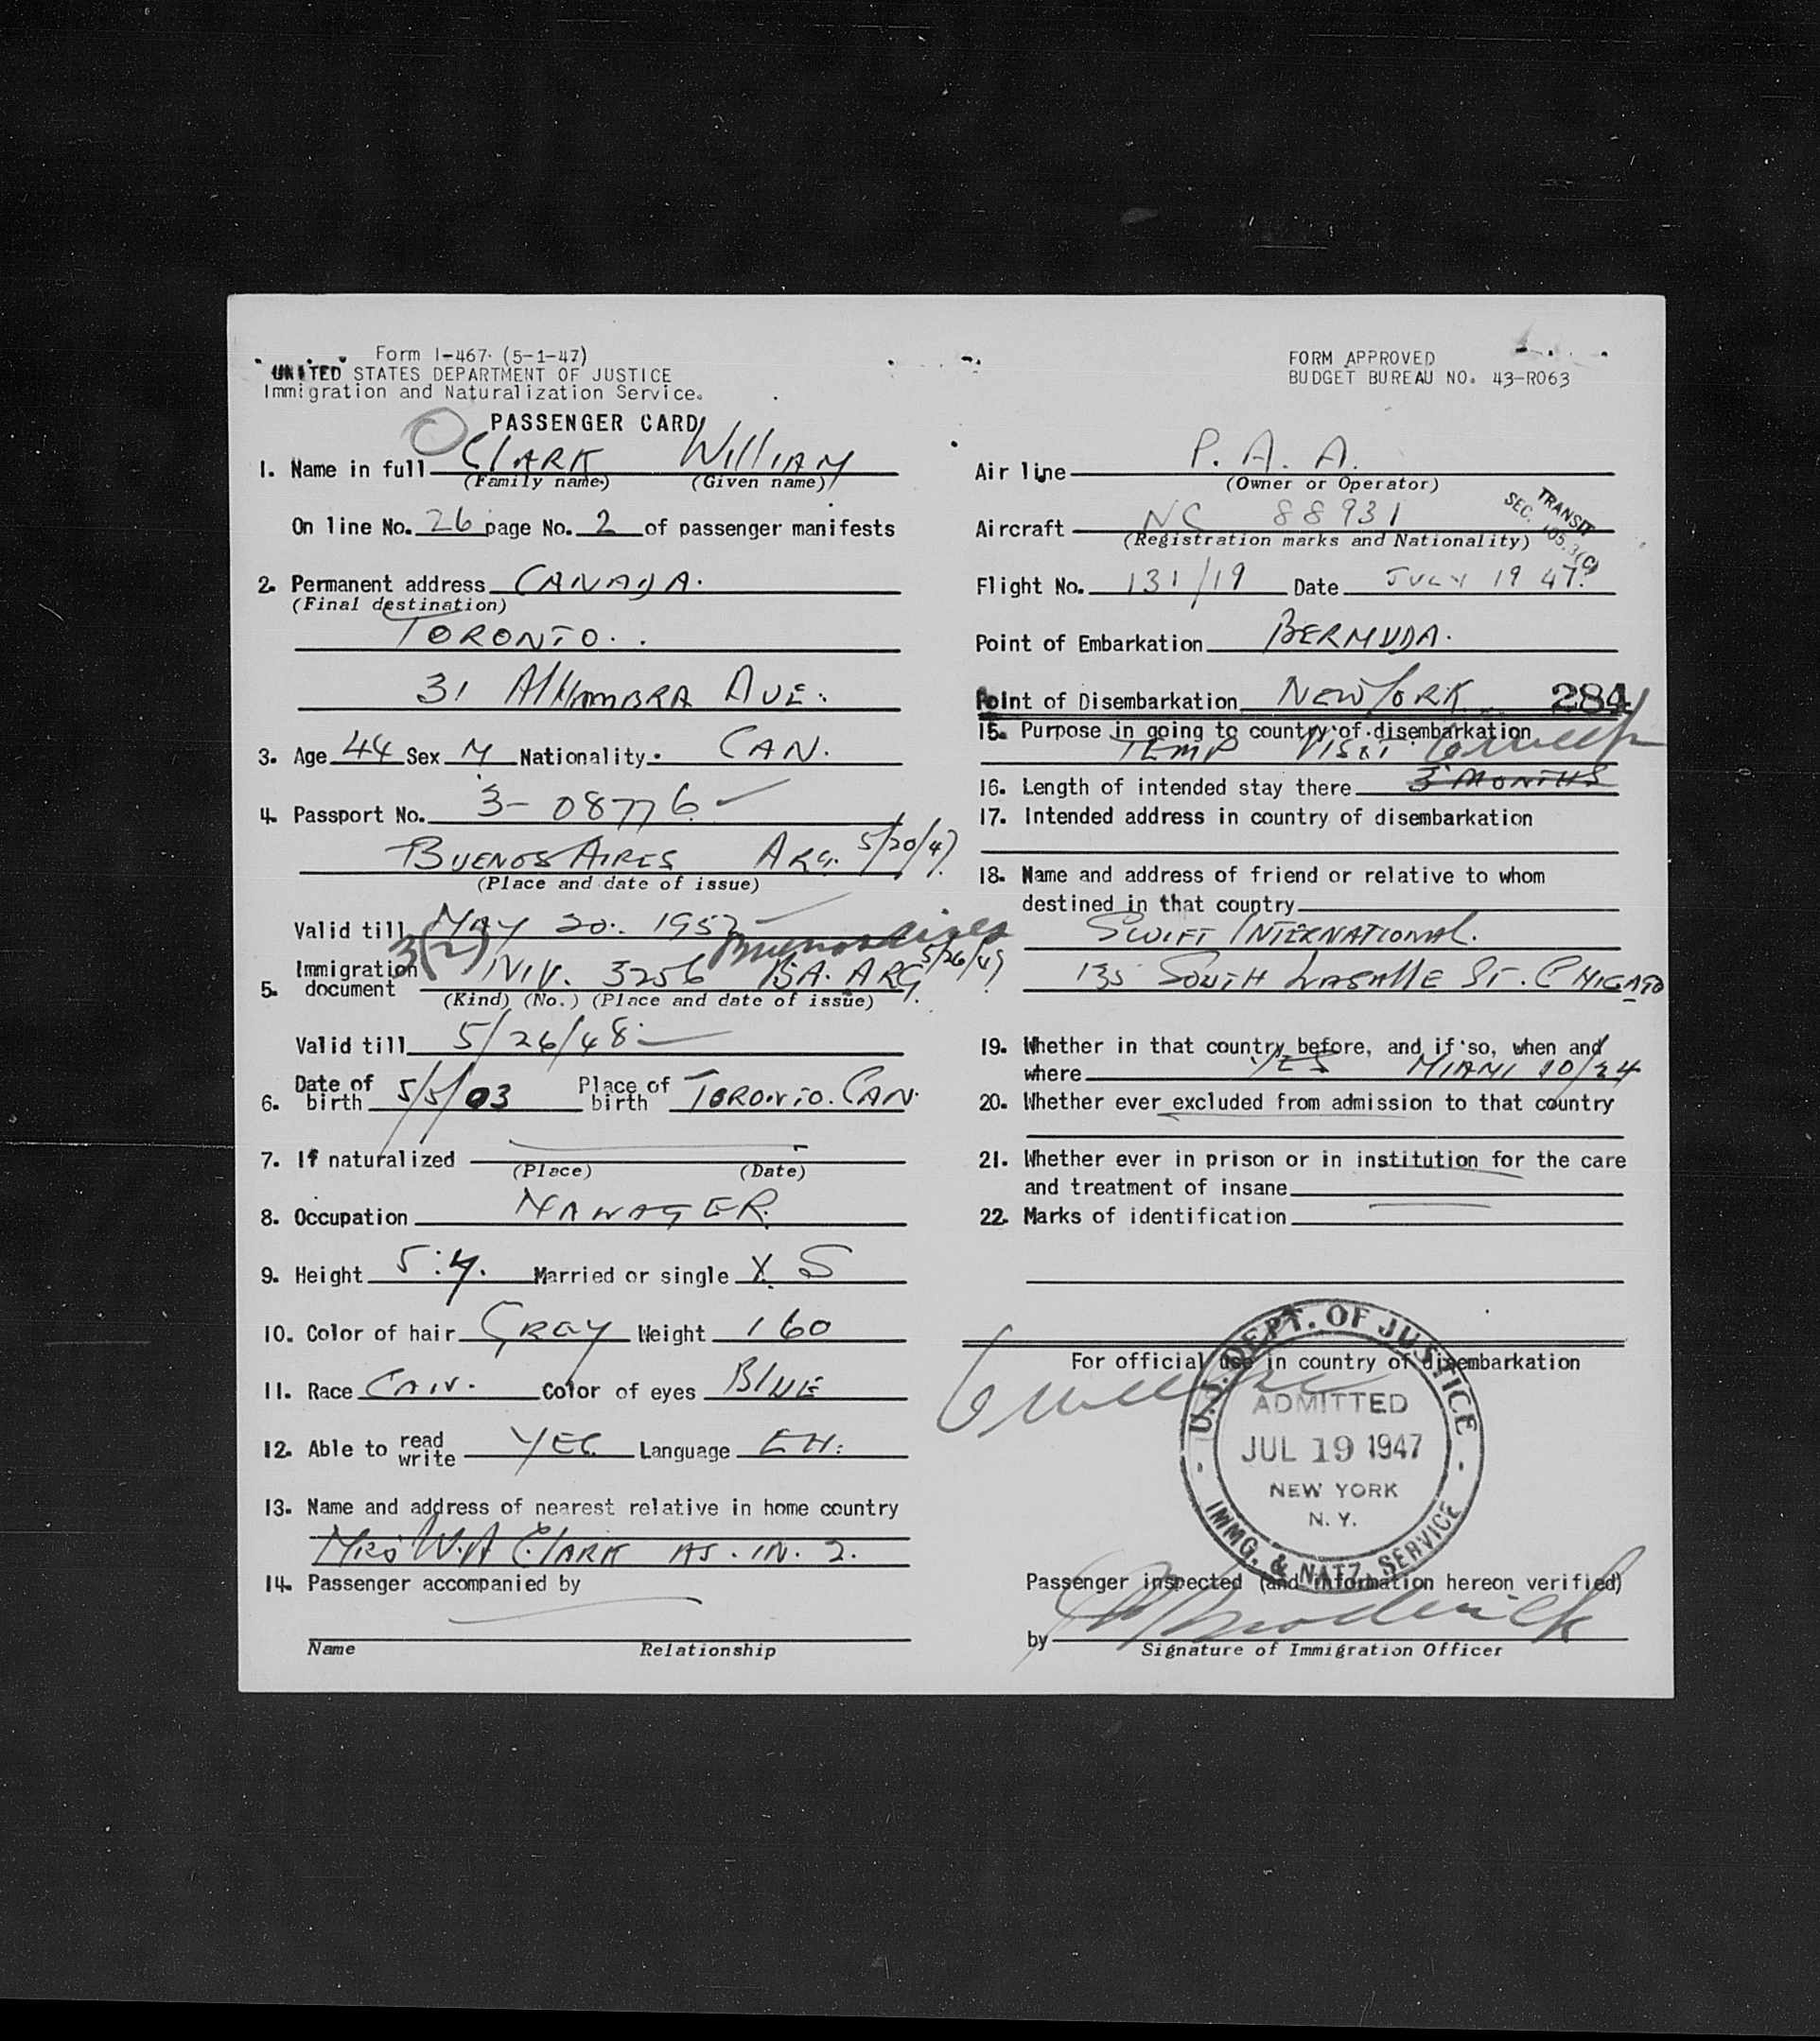 Form I-467 (5-1-47)
UNITED STATES DEPARTMENT OF JUSTICE
Immigration and Naturalization Service.
PASSENGER CARD
1. Name in full CLARK WILLIAM
(Family name) (Given name)
On line No. 26 page No. 2 of passenger manifests
2. Permanent address CANADA.
(Final destination)
TORONTO.
31 AlHAMBRA AVE.
3. Age 44 Sex M Nationality CAN.
4. Passport No. 3-08776
BUENOS AIRES ARG. 5/20/47
(Place and date of issue)
Valid till MAY 20. 1952
3(2) Buenos Aires
5. Immigration document NIV. 3256 BA. ARG 5/26/47
(Kind) (No.) (Place and date of issue)
Valid till 5/26/48
6. Date of birth 5/5/03 Place of birth TORONTO. CAN.
7. If naturalized
(Place) (Date)
8. Occupation MANAGER.
9. Height 5:4. Married or single X S
10. Color of hair GREY Weight 160
11. Race CAN. Color of eyes BlUE
12. Able to read write YES Language EN.
13. Name and address of nearest relative in home country
MRS W.A ClARK AS. IN. 2.
14. Passenger accompanied by
Name Relationship
FORM APPROVED
BUDGET BUREAU NO. 43-R063
Air line P. A. A.
(Owner or Operator)
TRANSIT
SEC. 105.3(C)
Aircraft NC 88931
(Registration marks and Nationality)
Flight No. 131/19 Date JULY 19 47.
Point of Embarkation BERMUDA.
Point of Disembarkation NEW YORK 284
15. Purpose in going to country of disembarkation
TEMP VISIT
16. Length of intended stay there 3 MONTHS
17. Intended address in country of disembarkation
18. Name and address of friend or relative to whom
destined in that country
SWIFT INTERNATIONAL.
135 SOUTH LASAllE ST. CHICAGO
19. Whether in that country before, and if so, when and
where YES MIAMI 10/24
20. Whether ever excluded from admission to that country
21. Whether ever in prison or in institution for the care
and treatment of insane
22. Marks of identification
For official use in country of disembarkation
U.S. DEPT. OF JUSTICE
ADMITTED
JUL 19 1947
NEW YORK
N.Y.
IMMG. & NATZ. SERVICE
Passenger inspected (and information hereon verified)
by Broderick
Signature of Immigration Officer